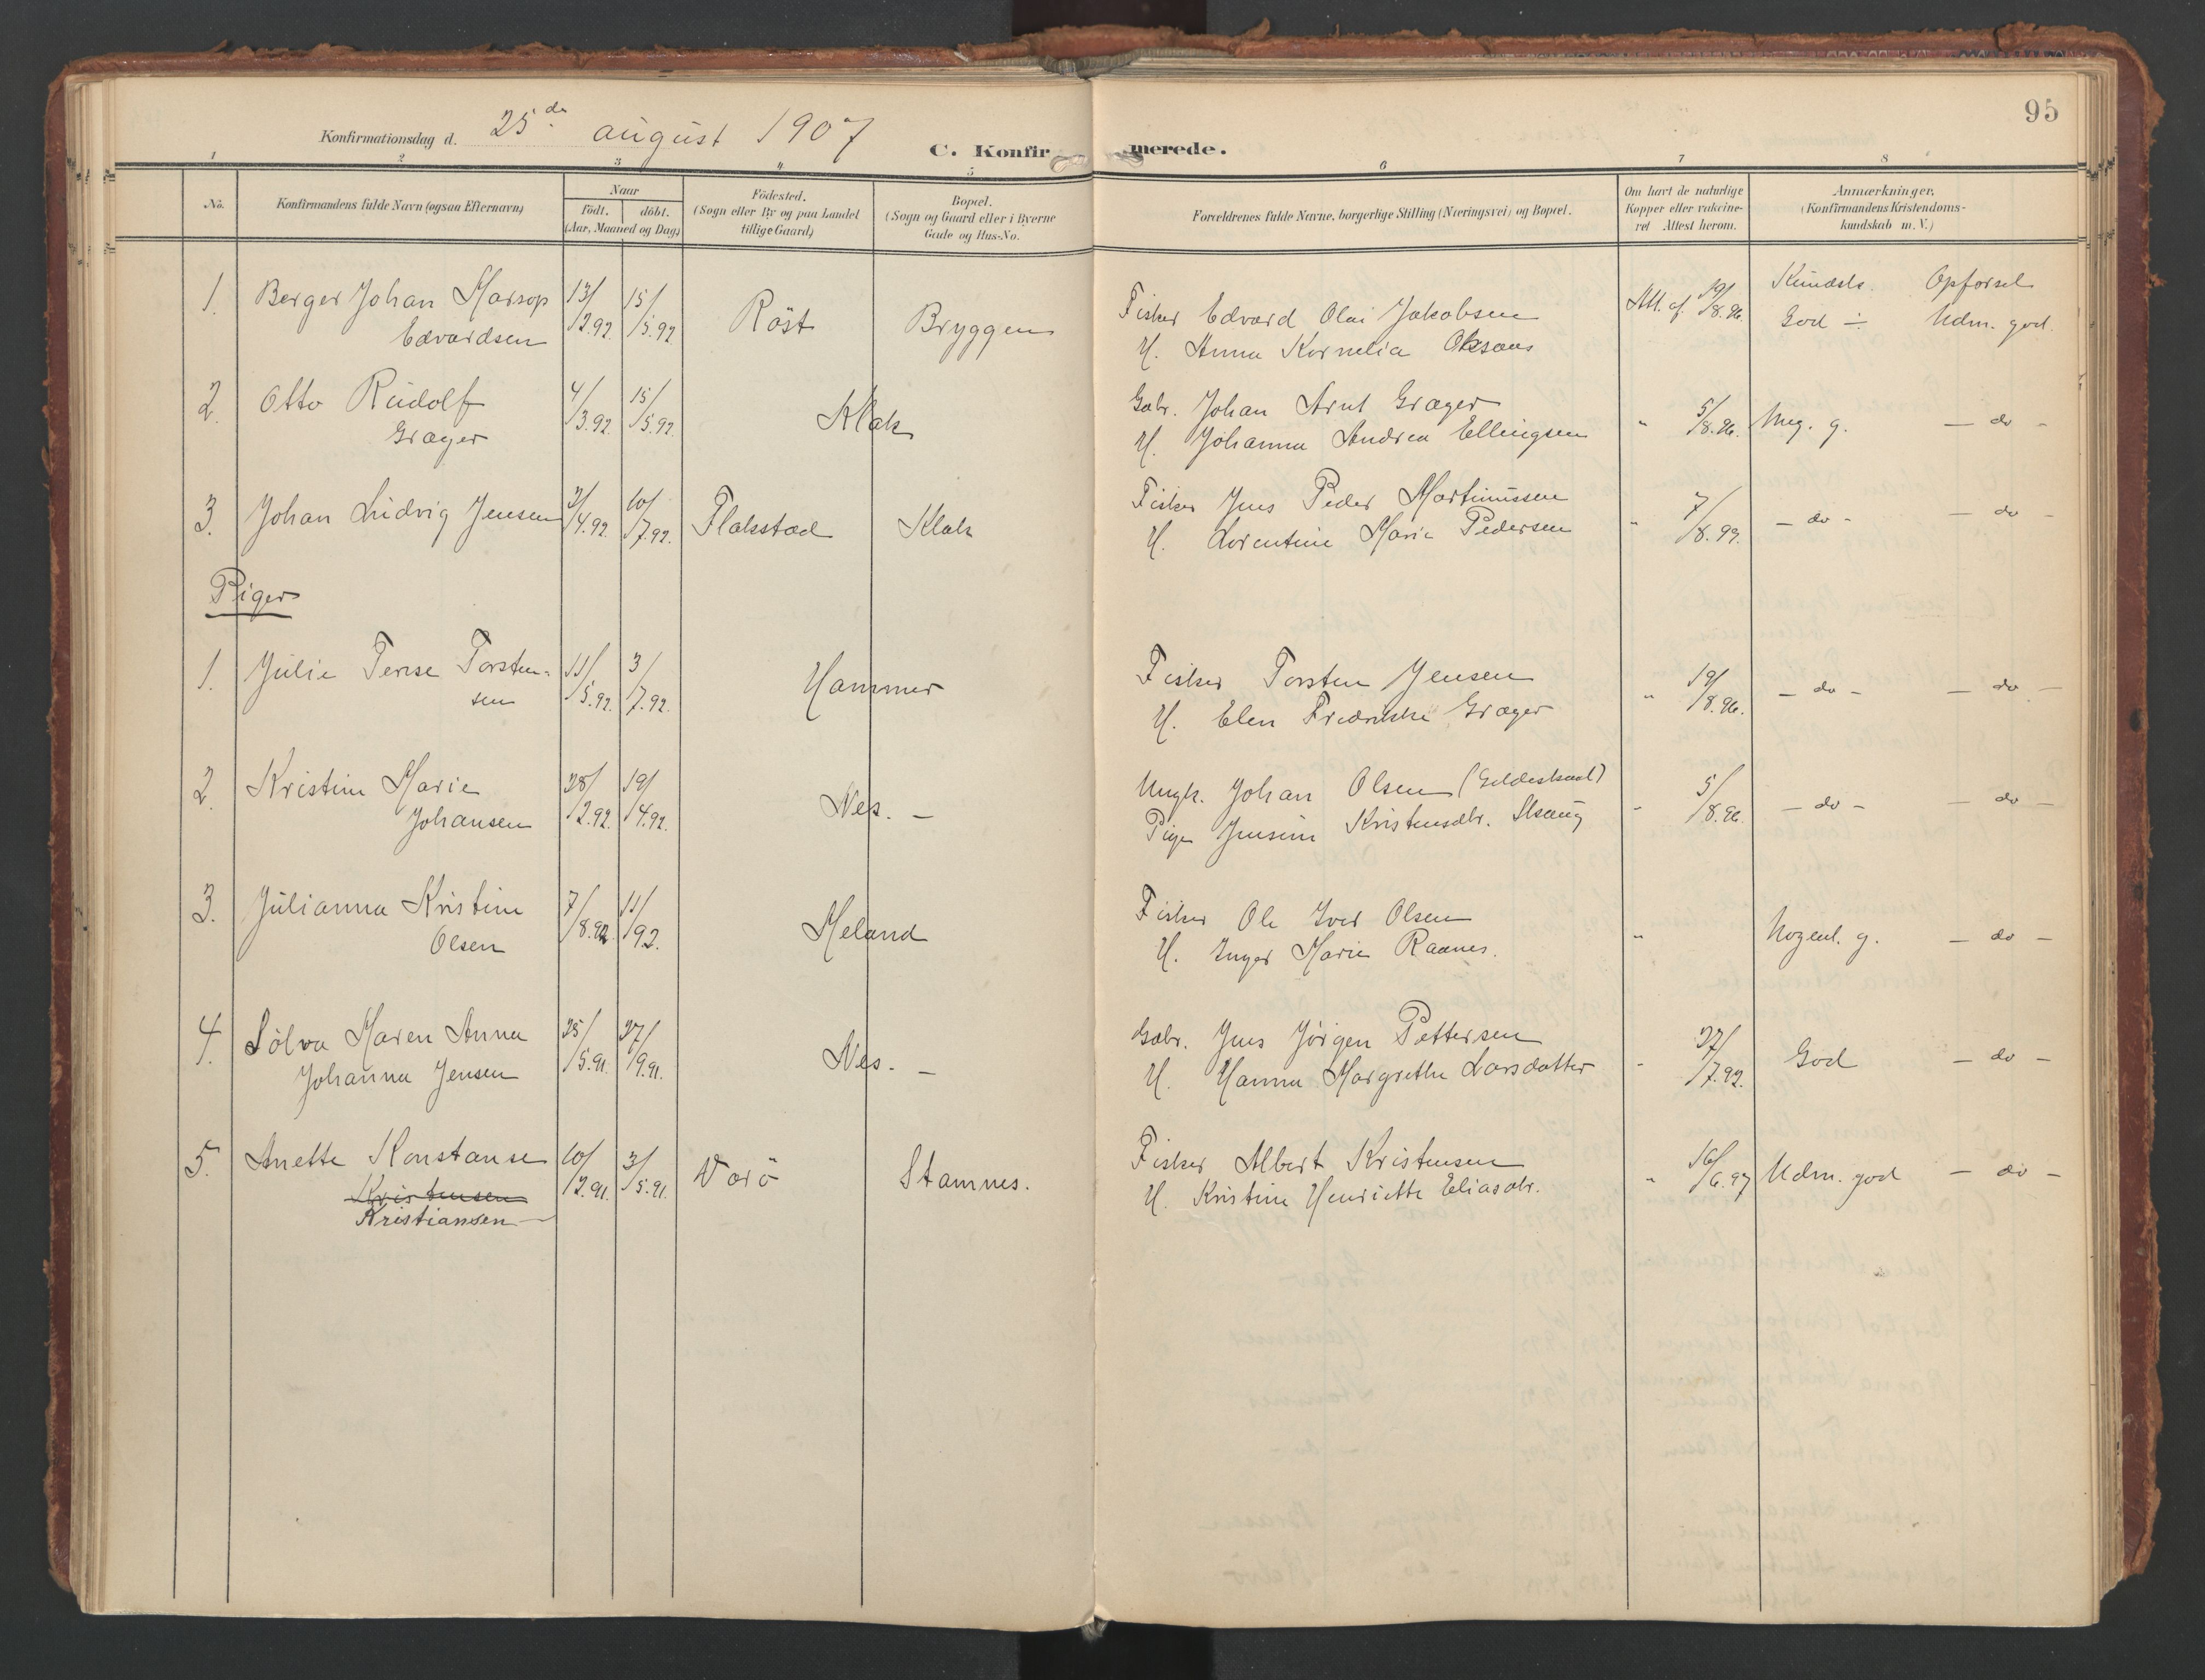 95
Konfirmationsdag d. 25de august 1907
C. Konfirmerede.
1 2 3 4 5 6 7 8
No.
Konfirmandens fulde Navn (ogsaa Efternavn)
Naar
födt. döbt.
(Aar, Maaned og Dag)
Födested.
(Sogn eller By og paa Landet
tillige Gaard)
Bopæl.
(Sogn og Gaard eller i Byerne
Gade og Hus-No.
Forældrenes fulde Navne, borgerlige Stilling (Næringsvei) og Bopæl.
Om havt de naturlige
Kopper eller vakcine-
ret Attest herom.
Anmærkninger.
(Konfirmandens Kristendoms-
kundskab m. V.)
Kundsk. Opførsel
1. Berger Johan 13/2.92. 15/5.92 Röst Bryggen Fisker Edvard Olai Jakobsen Att. af 19/8.96. God ÷ Udm. god.
Edvardsen H. Anna Kornelia
2. Otto Rudolf 4/3.92. 15/5.92. Klak Gbr. Johan Arnt Græger " 5/8.96. Meg. g. — do -
Græger H. Johanna Andrea Ellingsen
3. Johan Ludvig Jensen /4.92. 10/7.92. Flakstad Klak Fisker Jens Peder Martinussen " 7/8.99. — do - — do —
H. Lorentine Marie Pedersen
Piger
1. Julie Terese Torsten- 11/5.92. 3/7.92. Hammer Fisker Torsten Jensen " 19/8.96. — do - — do —
sen H. Elen Fredrikke Græger
2. Kristine Marie 28/2.92. 19/4.92. Nes. — Ungk. Johan Olsen (Gildeskaal) - 5/8.96. — do - — do —
Johansen Pige Jensine Kristensdtr.
3. Julianna Kristine 7/8.92. 11/92. Meland Fisker Ole Iver Olsen " Nogenl. g. — do —
Olsen H. Inger Marie Raanes.
4. Sölva Maren Anna 25/5.91. 27/9.91. Nes. — Gbr. Jens Jörgen Pettersen - 27/7.92. God — do —
Johanna Jensen H. Hanna Margrethe Larsdatter
5. Anette Konstanse 10/2.91. 3/5.91. Værö Stamnes. Fisker Albert Kristensen - 16/6.97 Udm. god — do —
Kristensen H. Kristine Henriette Eliasdtr.
Kristiansen —